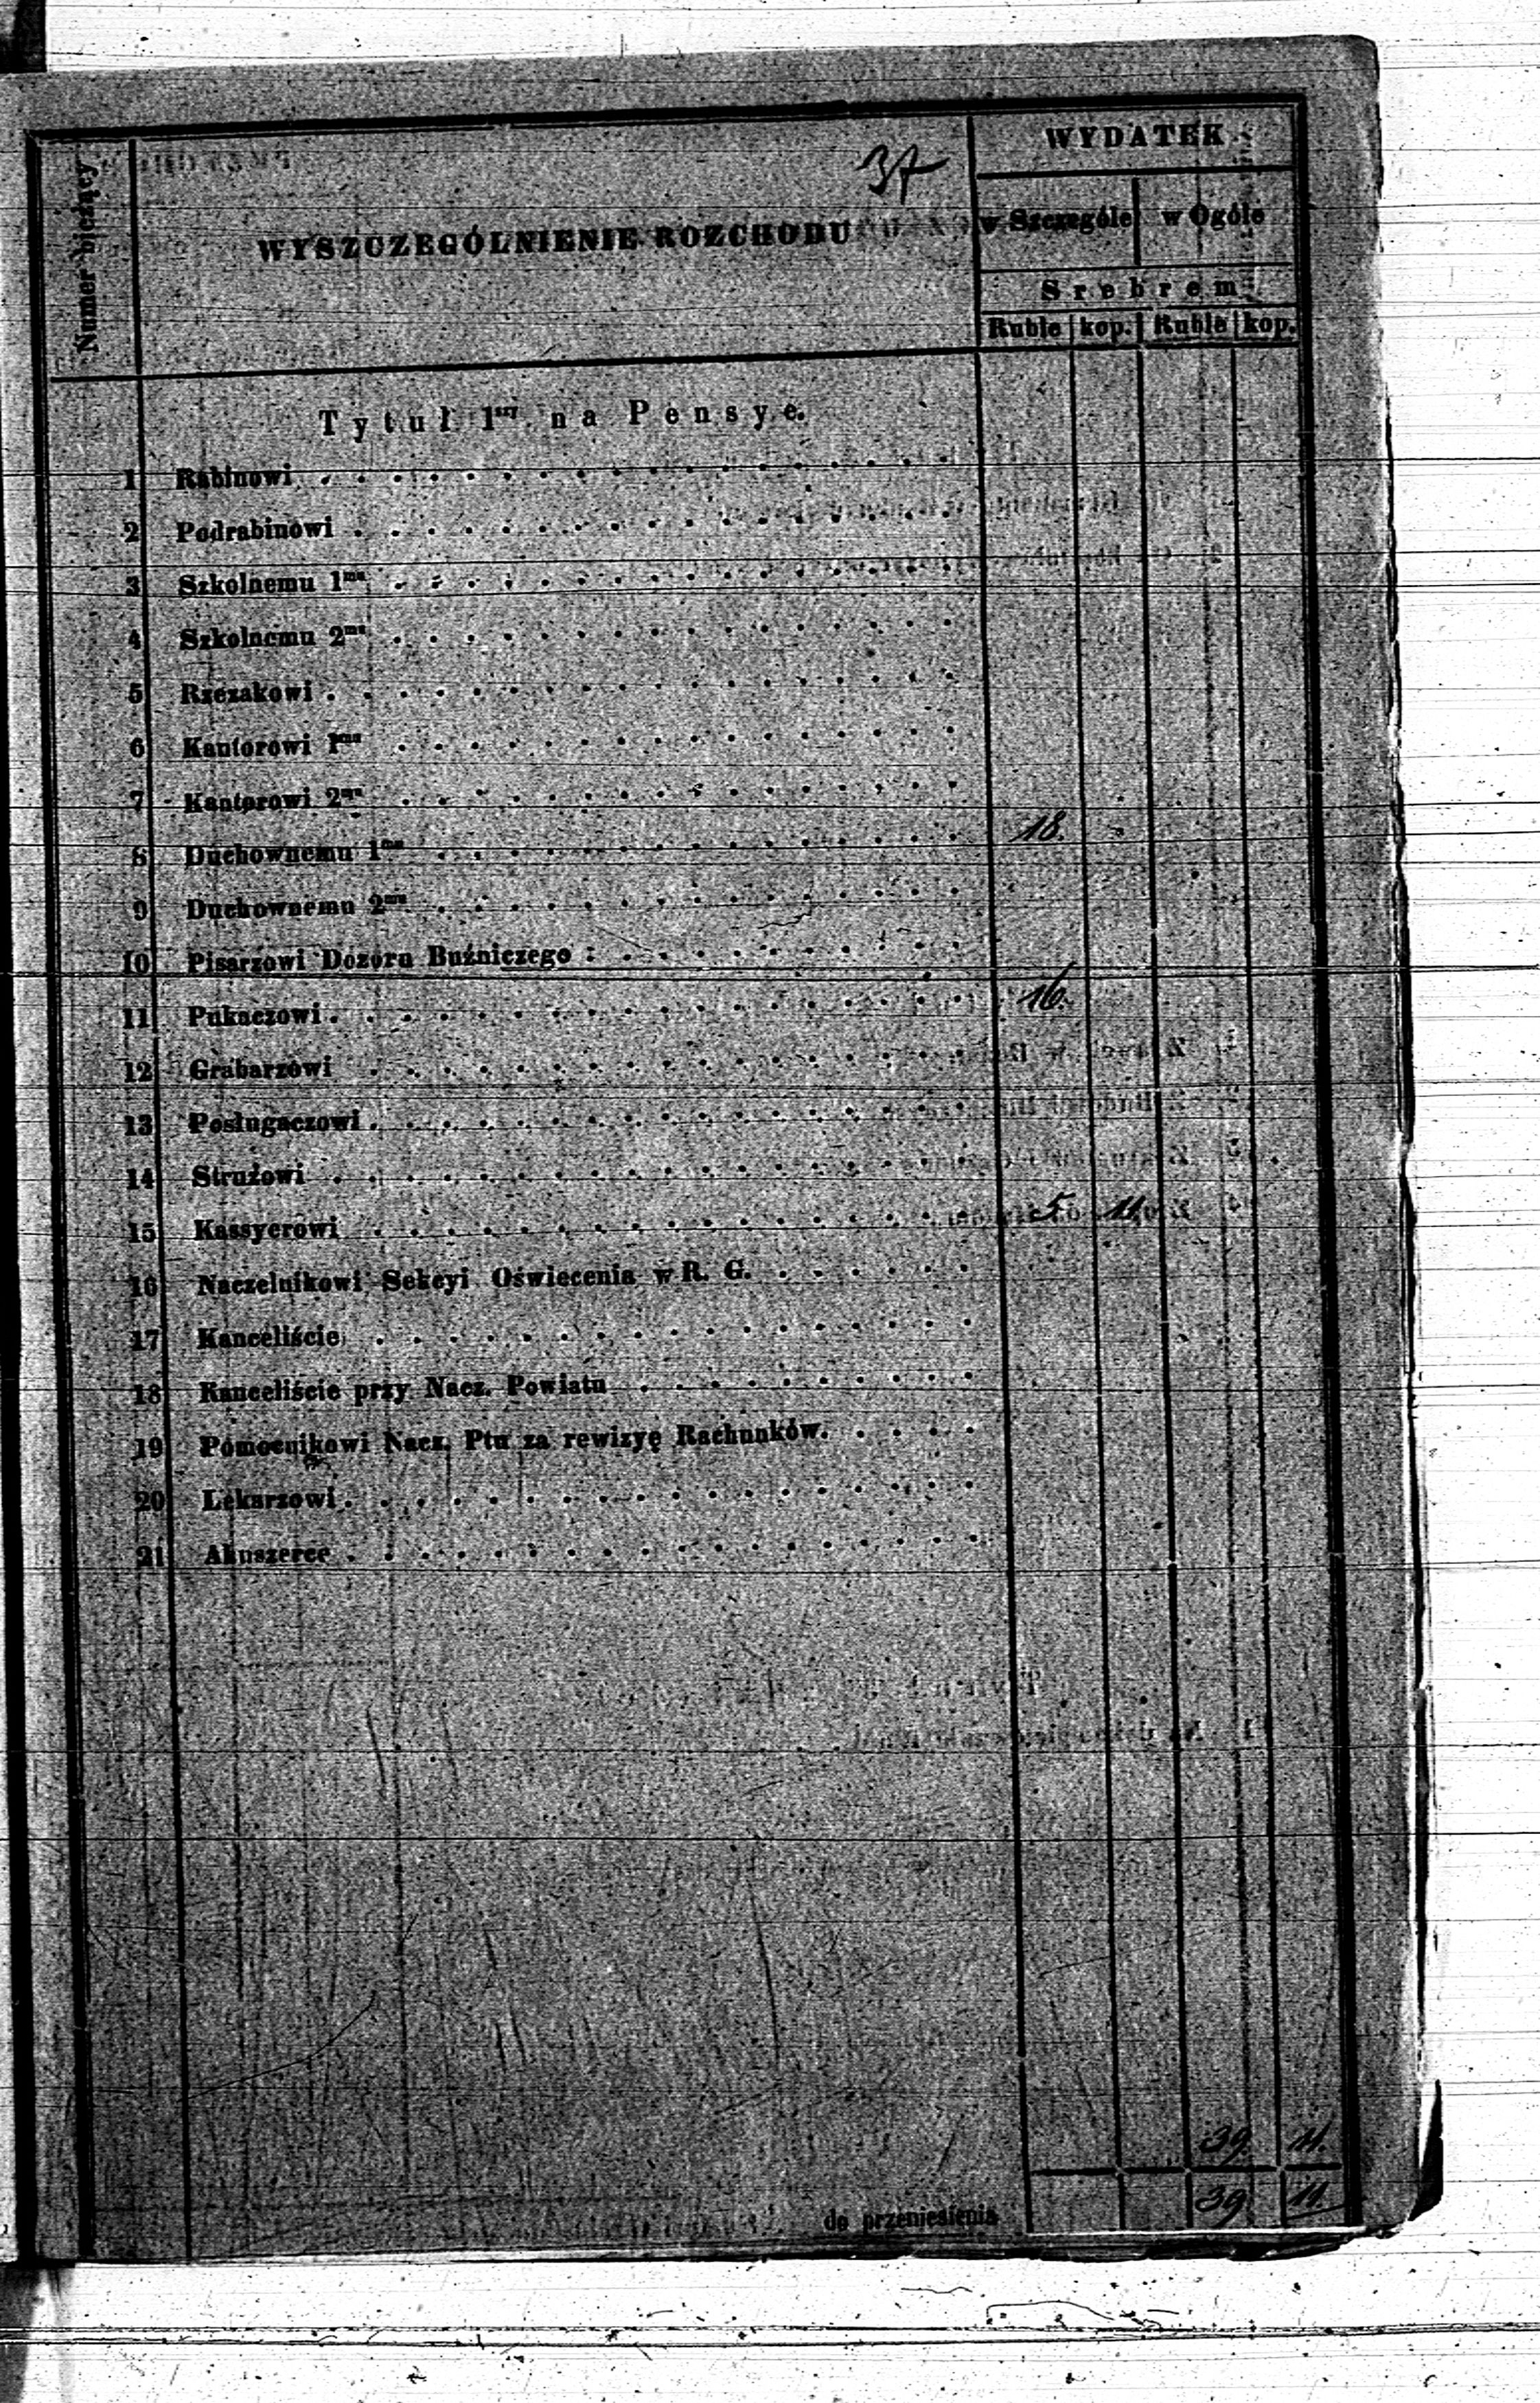 37
WYDATEK
Numer bieżący
WYSZCZEGÓLNIENIE ROZCHODU
w Szczególe w Ogóle
Srebrem
Ruble kop. Ruble kop.
Tytuł 1szy na Pensye.
1 Rabinowi
2 Podrabinowi
3 Szkolnemu 1mu
4 Szkolnemu 2mu
5 Rzezakowi
6 Kantorowi 1mu
7 Kantorowi 2mu
8 Duchownemu 1mu 18. "
9 Duchownemu 2mu
10 Pisarzowi Dozoru Buźniczego
11 Pukaczowi 16.
12 Grabarzowi
13 Posługaczowi
14 Strużowi
15 Kassyerowi 5 11.
16 Naczelnikowi Sekcyi Oświecenia w R. G.
17 Kanceliście
18 Kanceliście przy Nacz. Powiatu
19 Pomocnikowi Nacz. Ptu za rewizyę Rachunków.
20 Lekarzowi
21 Akuszerce
39. 11.
do przeniesienia 39. 11.